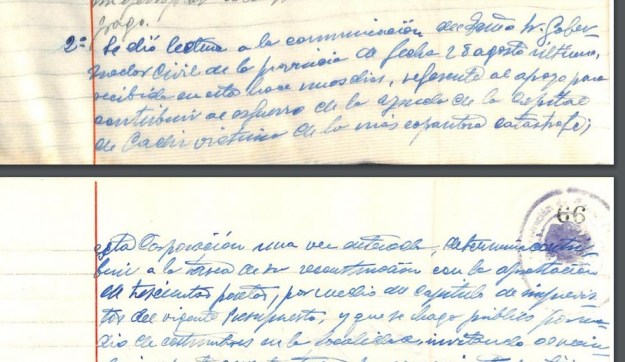 trago.
2º: Se dió lectura a la comunicación del Excmo Sr. Gober-
nador Civil de la provincia de fecha 28 agosto último,
recibida en esta hace unos dias, referente al apoyo para
contribuir al esfuerzo de la ayuda de la Capital
de Cadiz victima de la más espantosa catastrofe;
66
esta Corporación una vez enterada, determina contri-
buir a la tarea de su reconstrucción con la aportación
de trescientas pesetas, por medio de capitulo de imprevis-
tos del vigente Presupuesto, y que se haga público por me-
dio de costumbres en la localidad invitando